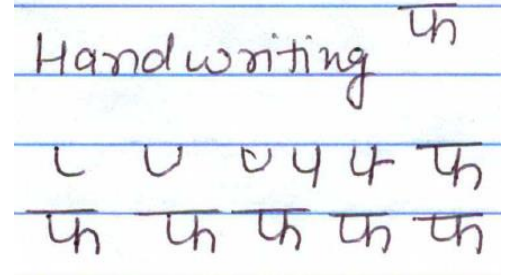 Handwriting फ
फ
फ फ फ फ फ